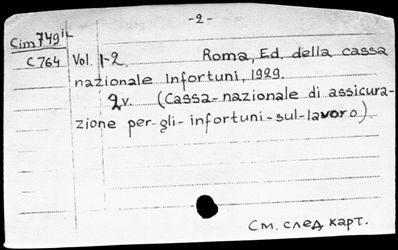 -2-
Cim 749 iL
C 764 Vol. 1-2. Roma, Ed. della cassa
nazionale infortuni, 1929.
2v. (Cassa-nazionale di assicura-
zione per-gli-infortuni-sul-lavoro).
См. след карт.